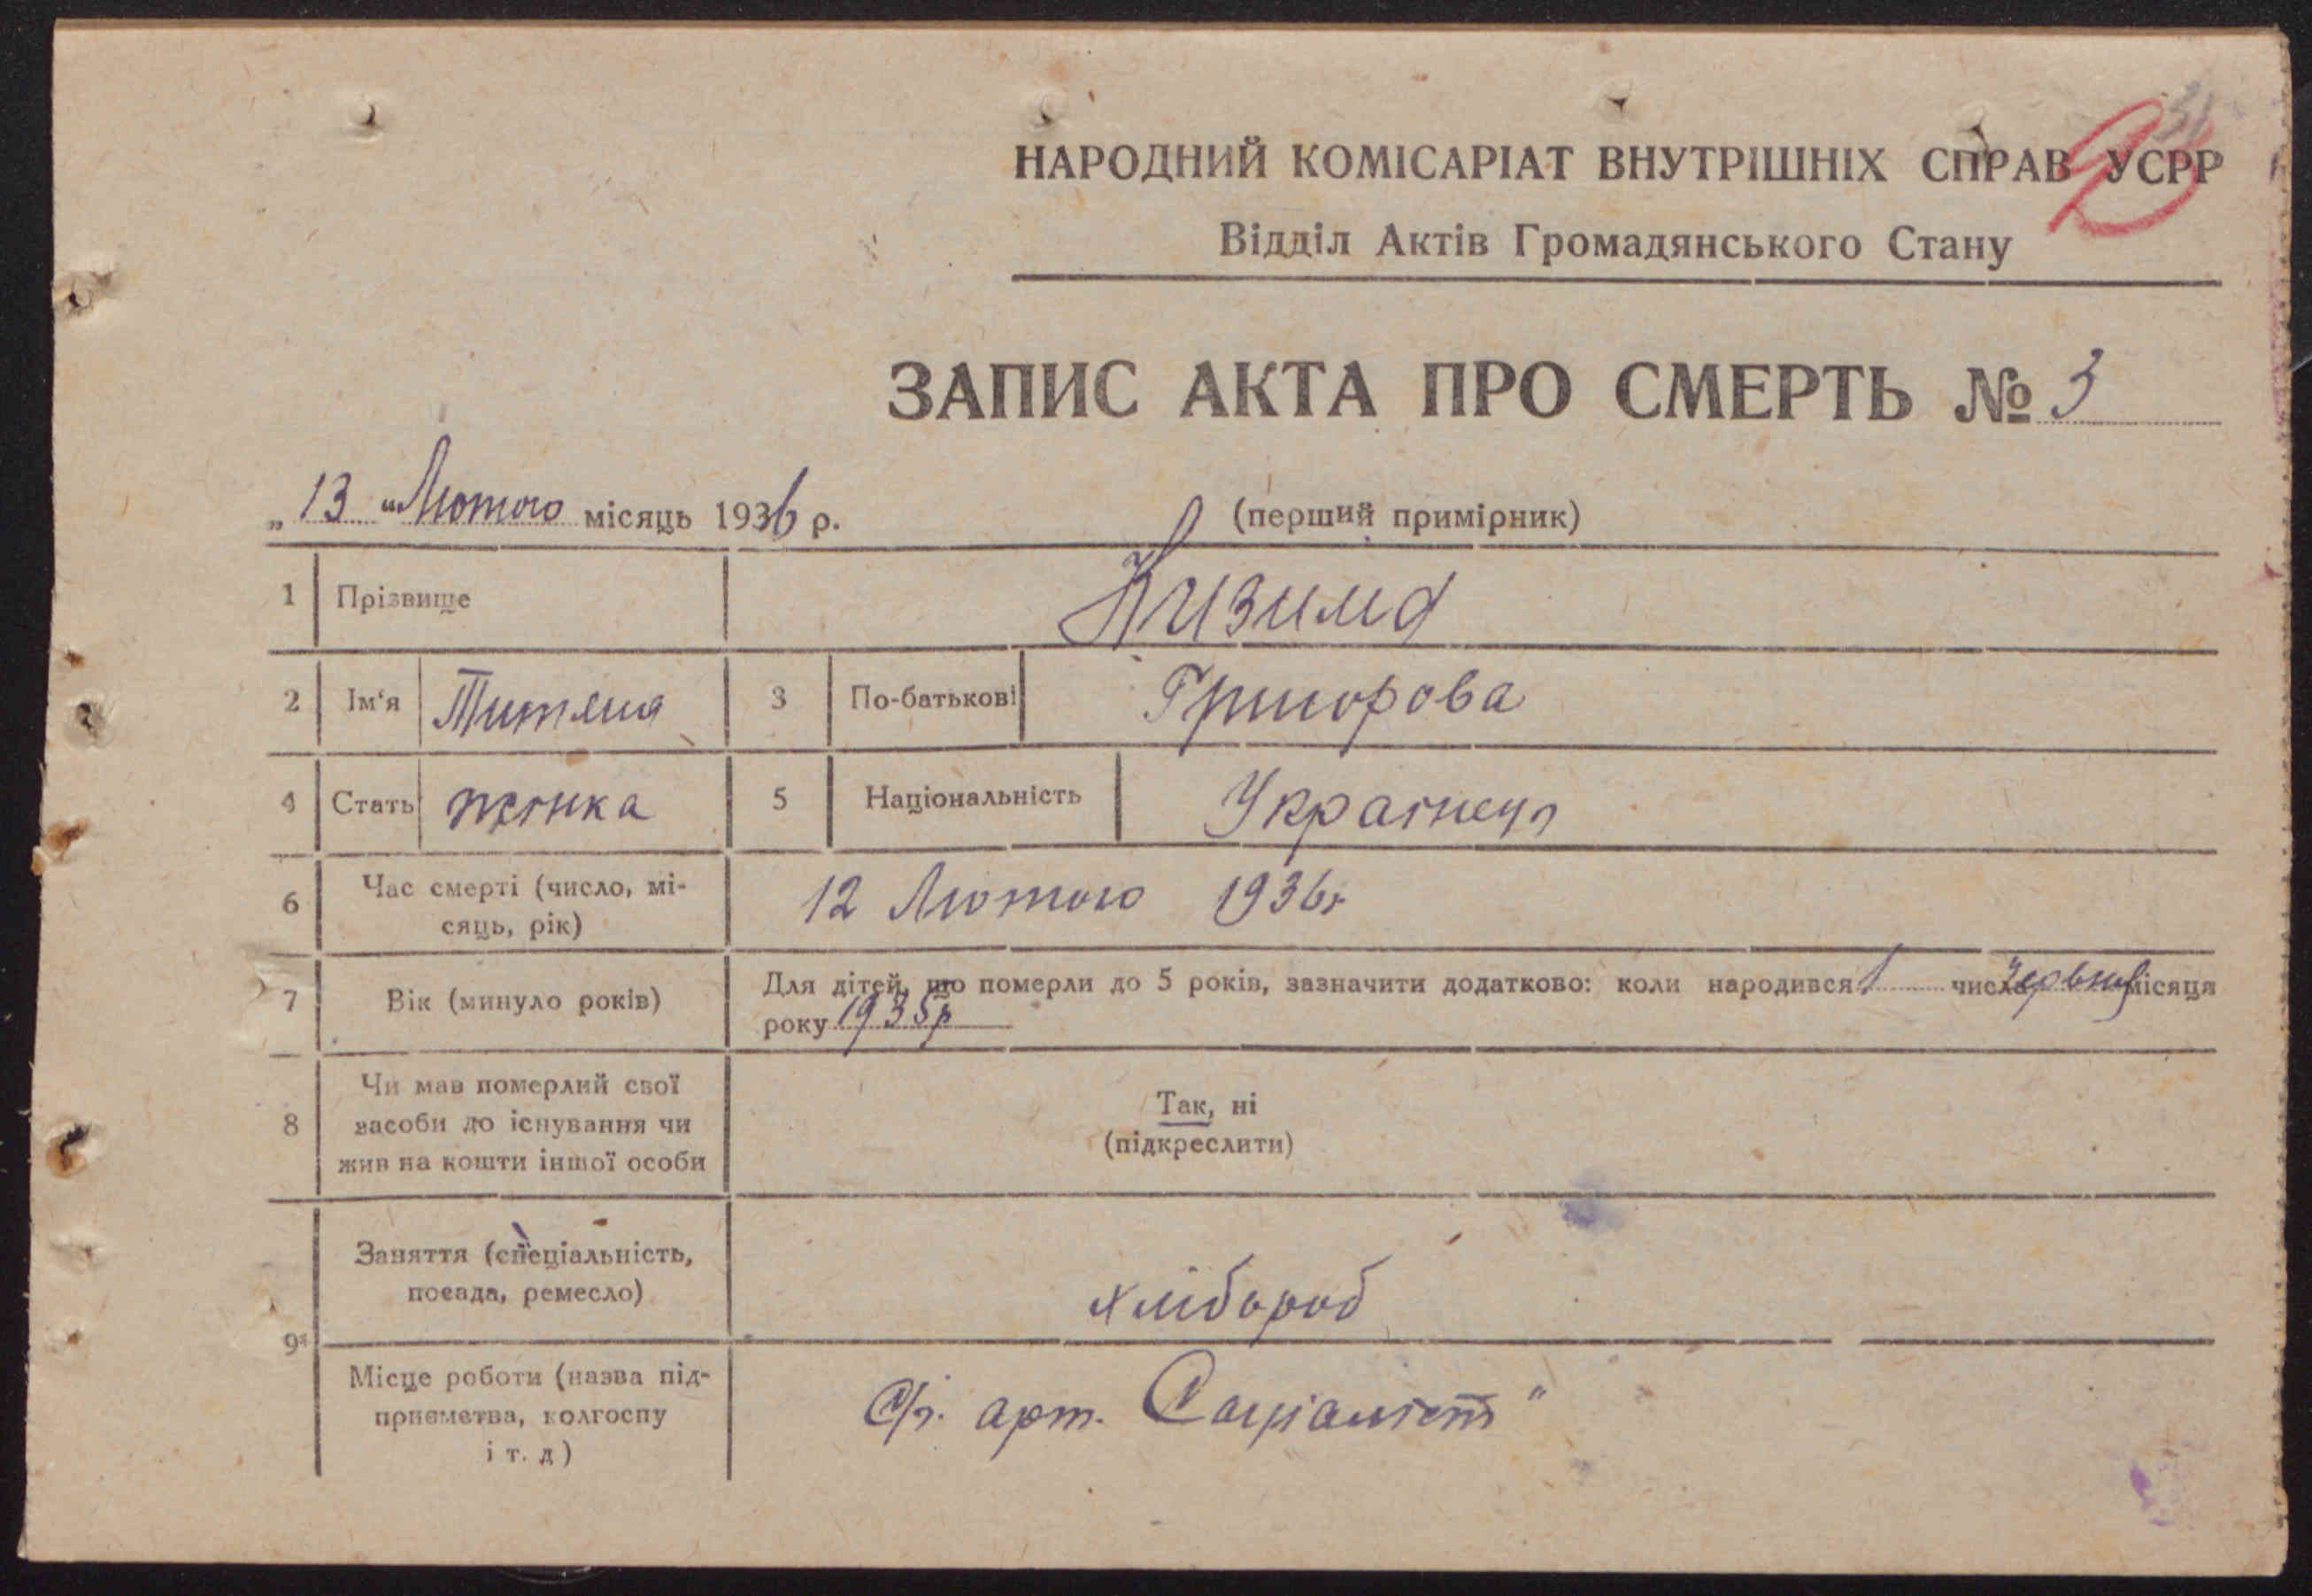 НАРОДНИЙ КОМІСАРІАТ ВНУТРІШНІХ СПРАВ УСРР
Відділ Актів Громадянського Стану
ЗАПИС АКТА ПРО СМЕРТЬ № 3
„ 13 “ Лютого місяць 1936 р. (перший примірник)
1 Прізвище Кизима
2 Ім'я Титяна 3 По-батькові Григорова
4 Стать жінка 5 Національність
6 Час смерті (число, мі-
сяць, рік) 12 Лютого 1936р
7 Вік (минуло років) Для дітей, що померли до 5 років, зазначити додатково: коли народився 1 числа червня місяця
року 1935р
8 Чи мав померлий свої
засоби до існування чи
жив на кошти іншої особи
Так, ні
(підкреслити)
9 Заняття (спеціальність,
посада, ремесло) хлібороб
Місце роботи (назва під-
приємства, колгоспу
і т. д)
С/г. арт. Соціаліст"